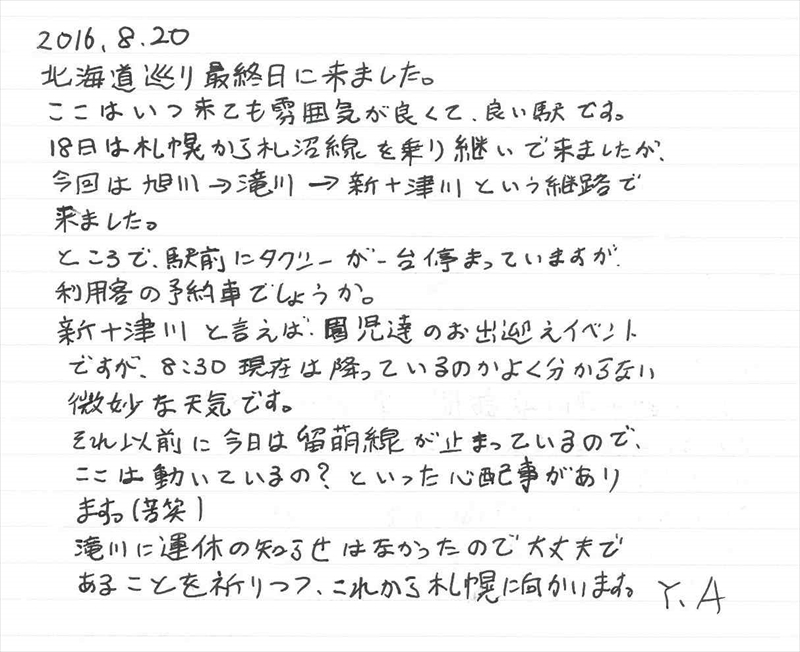 2016.8.20
北海道巡り最終日に来ました。
ここはいつ来ても雰囲気が良くて、良い駅です。
18日は札幌から札沼線を乗り継いで来ましたが、
今回は旭川→滝川→新十津川という経路で
来ました。
ところで、駅前にタクシーが一台停まっていますが、
利用客の予約車でしょうか。
新十津川と言えば、園児達のお出迎えイベント
ですが、8:30現在は降っているのかよく分からない
微妙な天気です。
それ以前に今日は留萌線が止まっているので、
ここは動いているの?といった心配事があり
ます。(苦笑)
滝川に運休の知らせはなかったので大丈夫で
あることを祈りつつ、これから札幌に向かいます。 Y.A